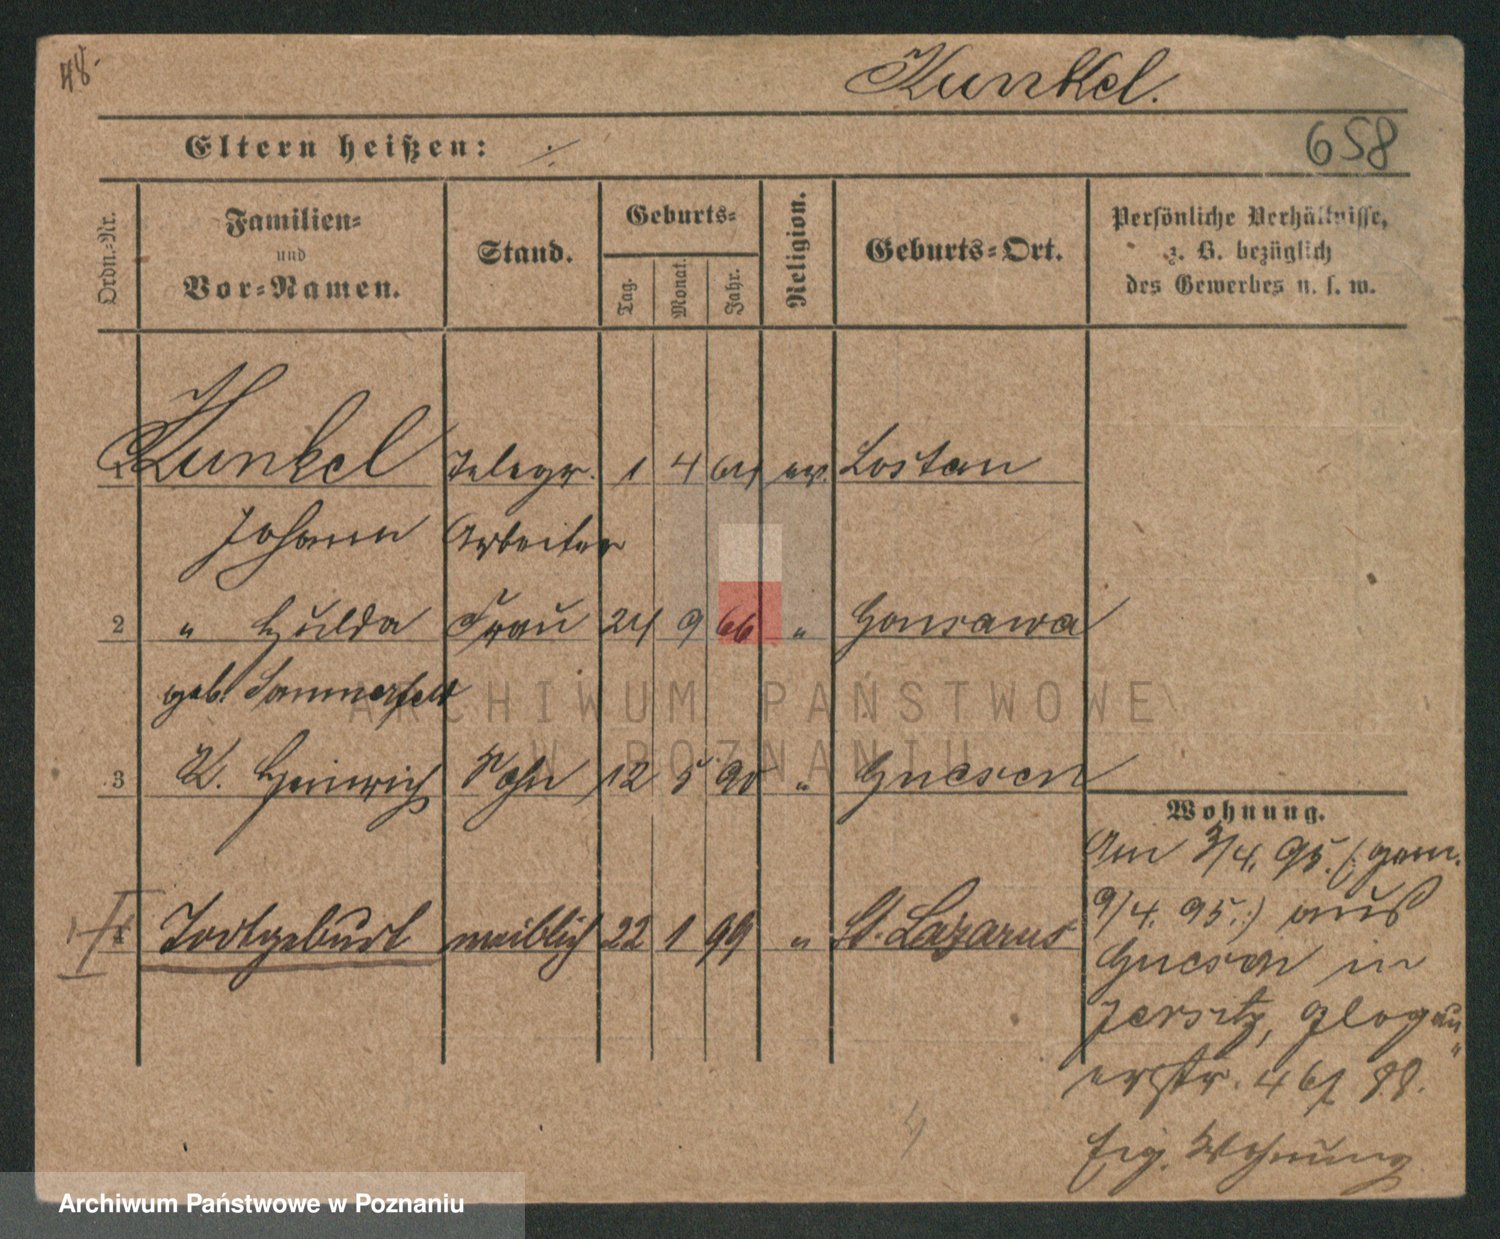 48.
Kunkel.
658
Eltern heißen: ./.
Ordn.-Nr.
Familien-
und
Vor-Namen.
Stand.
Geburts-
Tag.
Monat.
Jahr.
Religion.
Geburts-Ort.
Persönliche Verhältnisse,
z. B. bezüglich
des Gewerbes u. s. w.
1 Kunkel Telegr. 1 4 64 ev. Lostau
Johann Arbeiter
2 " Hulda Frau 24 9 66 " Gonsawa
geb. Sommerfeld
3 K. Heinrich Sohn 12 5 90 " Gnesen
4 Todtgeburt weiblich 22 1 99 " St. Lazarus
Wohnung.
Am 3/4. 95. (: gem.
9/4. 95 :) aus
Gnesen in
Jersitz, Glogau-
erstr. 46
Eig. Wohnung
ARCHIWUM PAŃSTWOWE
W POZNANIU
Archiwum Państwowe w Poznaniu